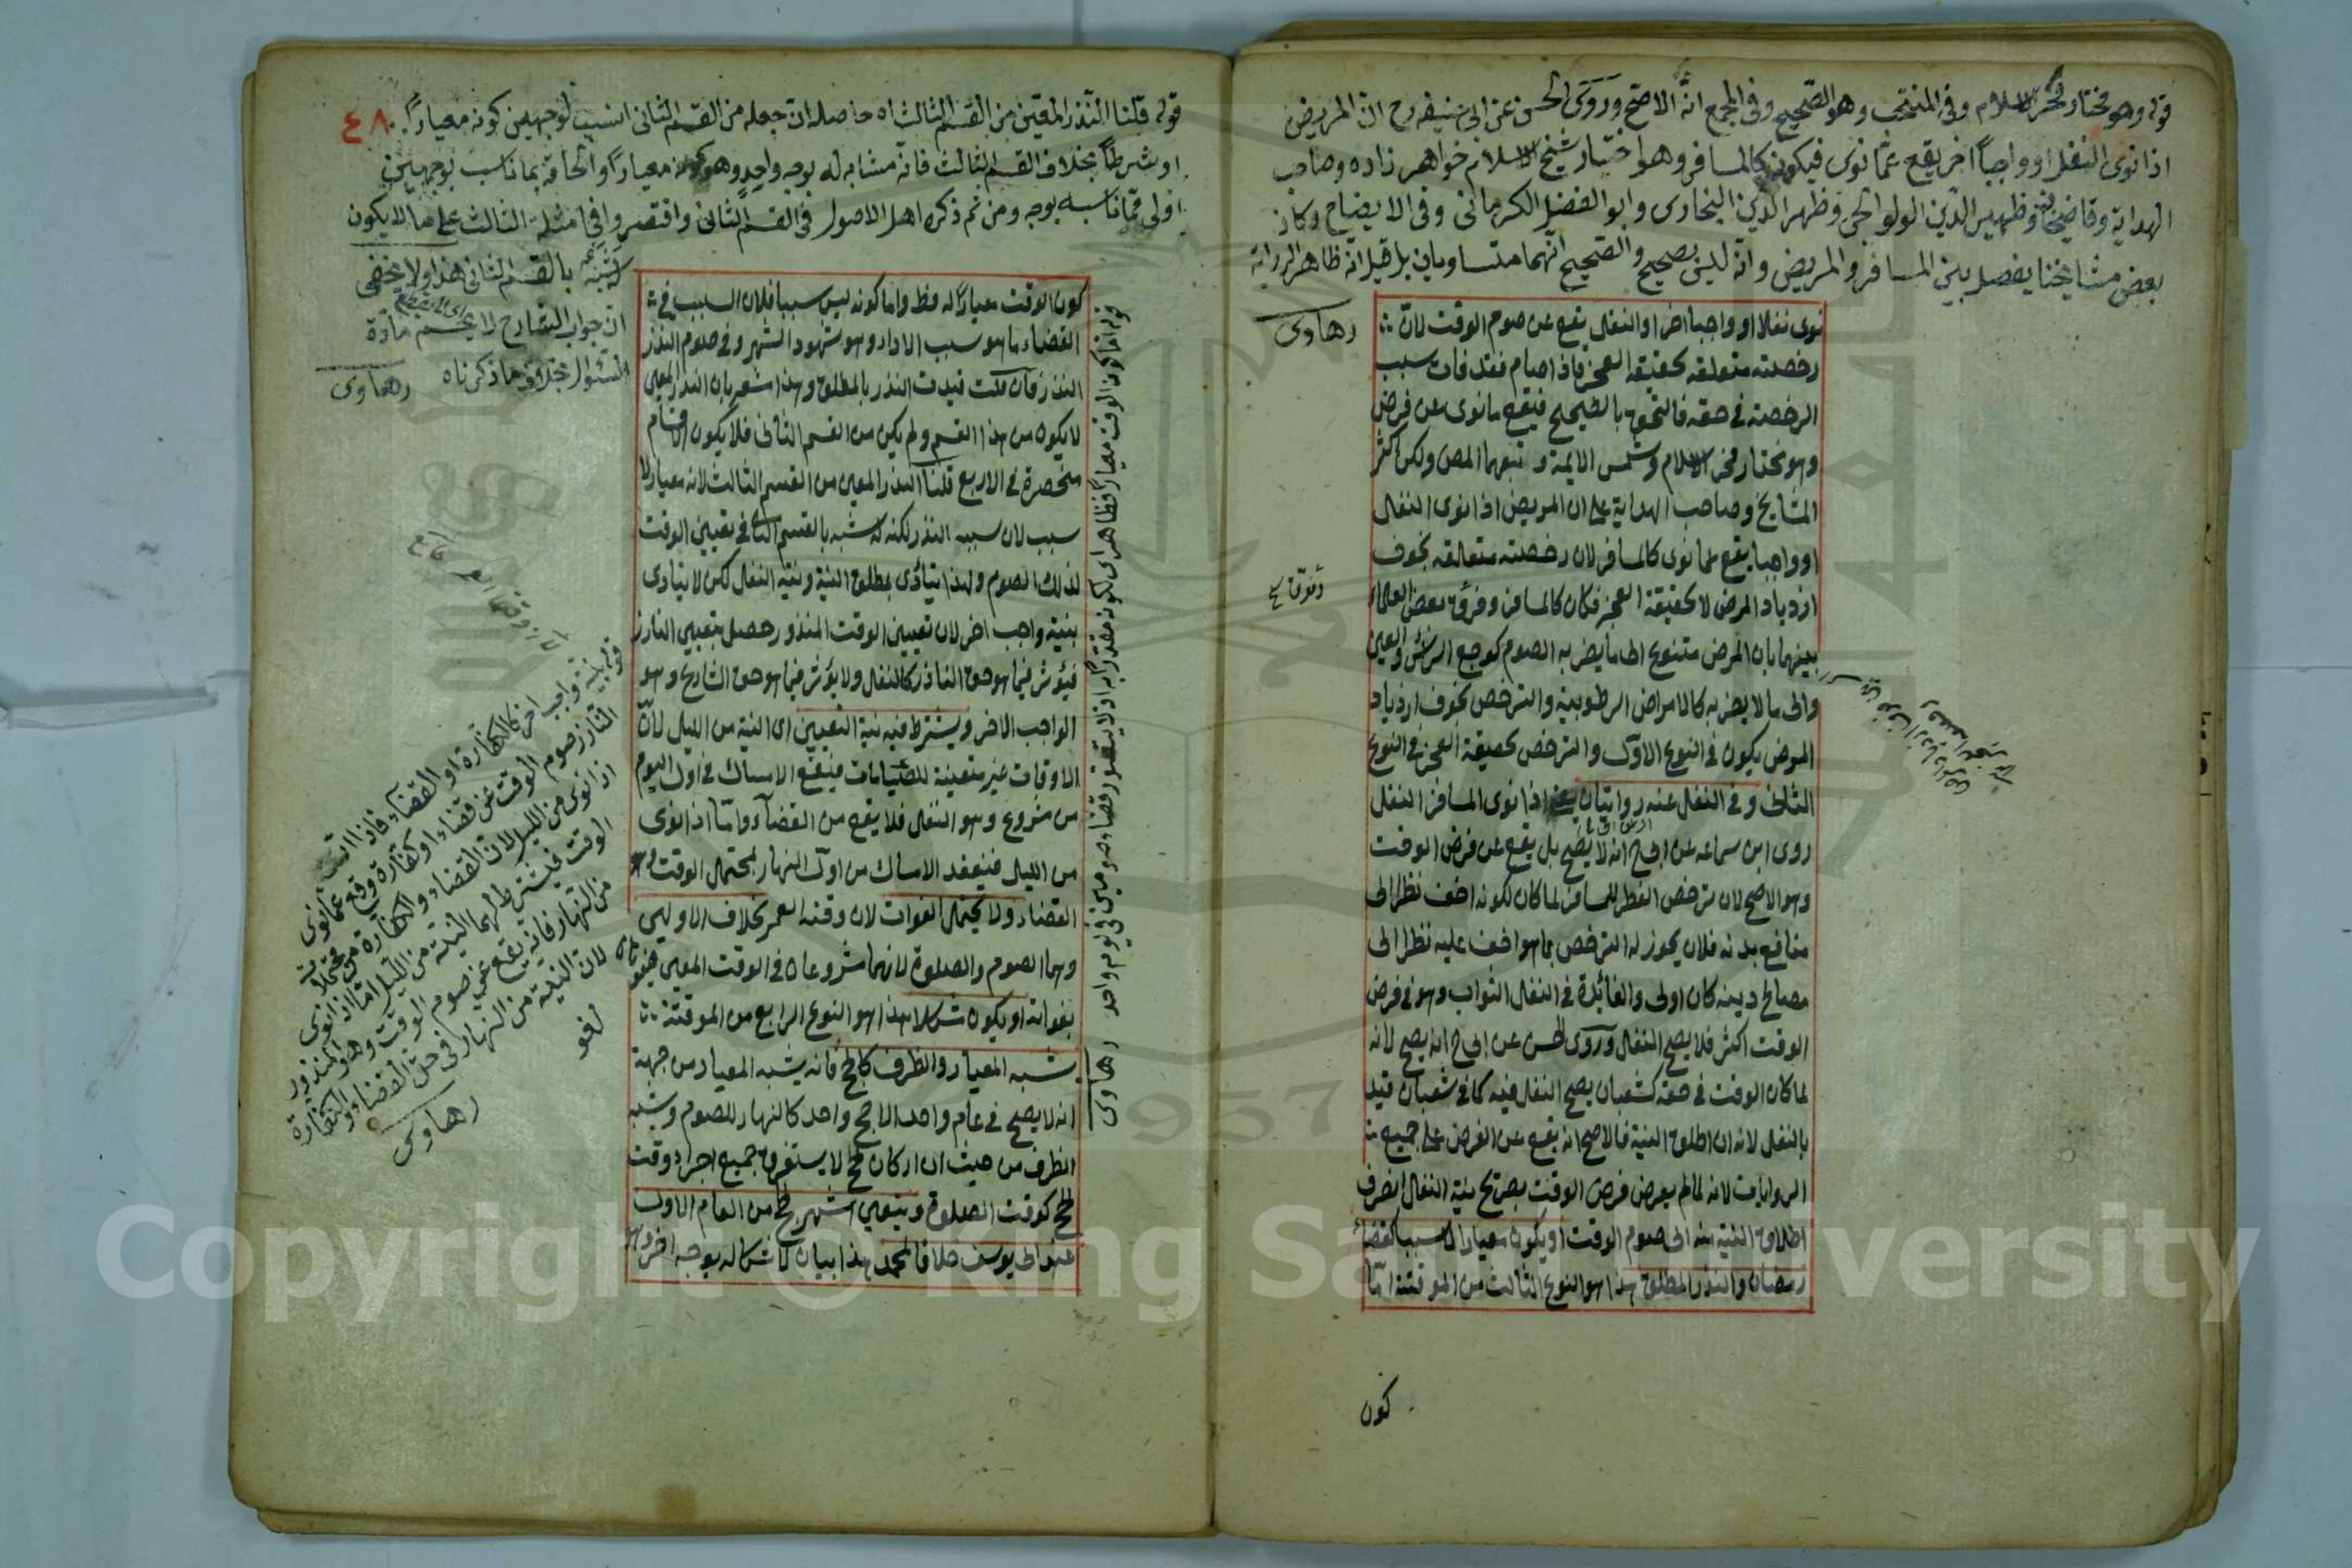 قوله وهو مختار فخر الاسلام وفى المنتخب وهو الصحيح وفى المجمع انه الاصح وروى الحسن عن ابى حنيفة رح ان المريض
اذا نوى النفل او واجباً اخر يقع عمّا نوى فيكون كالمسافر وهو اختيار شيخ الاسلام خواهر زاده وصاحب
الهداية وقاضيخان وظهير الدين الولوالجى وظهر الدين البخارى وابو الفضل الكرمانى وفى الايضاح وكان
بعض مشايخنا يفصل بين المسافر والمريض وانه ليس بصحيح والصحيح انهما متساويان بل قيل انه ظاهر الرواية
رهاوى
نوى نفلا او واجبا اخر او النفل يقع عن صوم الوقت لان
رخصته متعلقه بحقيقة العجز فاذا صام فقد فات سبب
الرخصة فى حقه فالتحق بالصحيح فيقع ما نوى عن فرض
وهو مختار فخر الاسلام وشمس الايمة وتبعهما المص ولكن اكثر
المشايخ وصاحب الهداية على ان المريض اذا نوى النفل
او واجبا يقع عما نوى كالمسافر لان رخصته متعلقه بخوف
ازدياد المرض لا بحقيقة العجز فكان كالمسافر وفرق بعض العلماء
بينهما بان المرض متنوع الى ما يضر به الصوم كوجع الرأس والعين
والى ما لا يضر به كالامراض الرطوبية والترخص بخوف ازدياد
المرض يكون فى النوع الاول والترخص بحقيقة العجز فى النوع
الثانى وفى النفل عنه روايتان يعنى اذا نوى المسافر النفل
روى ابن سماعه عن ابى ح انه لا يصح بل يقع عن فرض الوقت
وهو الاصح لان ترخص الفطر للمسافر لما كان لكونه اخف نظرا الى
منافع بدنه فلان يجوز له الترخص بما هو اخف عليه نظرا الى
مصالح دينه كان اولى والفائدة فى النفل الثواب وهو فى فرض
الوقت اكثر فلا يصح النفل وروى الحسن عن ابى ح انه يصح لانه
لما كان الوقت فى حقه كشعبان يصح النفل فيه كما فى شعبان قيد
بالنفل لانه ان اطلق النية فالاصح انه يقع عن الفرض على جميع
الروايات لانه لما لم يعرض فرض الوقت بصريح نية النفل انصرف
اطلاق النية منه الى صوم الوقت او يكون معيارا لا سببا كقضاء
رمضان والنذر المطلق هذا هو النوع الثالث من الموقتة اما
كون
قوله قلنا النذر المعين من القسم الثالث اه حاصله ان جعله من القسم الثانى انسب لوجهين كونه معياراً
٤٨
او شرطاً بخلاف القسم الثالث فانه مشابه له بوجه واحد وهو كونه معياراً والحاقه بما ناسب بوجهين
اولى مما ناسبه بوجه ومن ثم ذكره اهل الاصول فى القسم الثانى واقتصروا فى امثلة الثالث على ما لا يكون
له شبه بالقسم الثانى هذا ولا يخفى
ان جواب الشارح لا يحسم مادة
السئوال بخلاف ما ذكرناه رهاوى
كون الوقت معيارا له فظ واما كونه ليس سببا فلان السبب فى
القضاء ما هو سبب الاداء وهو شهود الشهر وفى صوم النذر
النذر فان قلت قيدت النذر بالمطلق وهذا اشعر بان النذر المعين
لا يكون من هذا القسم ولم يكن من القسم الثانى فلا يكون اقسام
منحصرة فى الاربع قلنا النذر المعين من القسم الثالث لانه معيار لا
سبب لان سببه النذر لكنه له شبه بالقسم الثانى فى تعيين الوقت
لذلك الصوم ولهذا يتأدى بمطلق النية ونية النفل لكن لا يتادى
بنية واجب اخر لان تعيين الوقت المنذور حصل بتعيين الناذر
فيؤثر فيما هو حق الناذر كالنفل ولا يؤثر فيما هو حق الشارع وهو
الواجب الاخر ويشترط فيه نية التعيين اى النية من الليل لان
الاوقات غير متعينة للصيامات فيقع الامساك فى اول اليوم
من مشروع وهو النفل فلا يقع من القضاء واما اذا نوى
من الليل فينعقد الامساك من اول النهار لمحتمل الوقت وهو
القضاء ولا يحتمل الفوات لان وقته العمر بخلاف الاوليين
وهما الصوم والصلوة لانهما مشروعان فى الوقت المعين
بفواته او يكون مشكلا هذا هو النوع الرابع من الموقتة
يشبه المعيار والظرف كالحج فانه يشبه المعيار من جهة
انه لا يصح فى عام واحد الا حج واحد كالنهار للصوم ويشبه
الظرف من حيث ان اركان الحج لا يستغرق جميع اجزاء وقت
الحج كوقت الصلوة ويتعين اشهر الحج من العام الاول
عند ابى يوسف خلافا لمحمد هذا بيان لاشكاله بوجه اخر
قوله اما كون الوقت معياراً فظاهر اى لكونه مقدراً به اذ لا يتصور قضاء صومين فى يوم واحد رهاوى
قوله بنية واجب اخر كالكفارة او القضاء فاذا
الناذر صوم الوقت عن قضاء او كفارة وقع عما نوى
اذا نوى من الليل لان القضاء والكفارة من محتملات
الوقت فيشترط لهما النية من الليل اما اذا نوى
من النهار فانه يقع عن صوم الوقت وهو المنذور
لان النية من النهار فى حق القضاء والكفارة
لغو
رهاوى